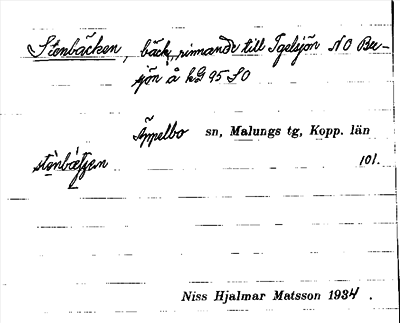 Stenbäcken, bäck, rinnande till Igelsjön NO Bu-
sjön å kG 95 SO
Äppelbo sn, Malungs tg, Kopp. län
101.
Niss Hjalmar Matsson 1934.